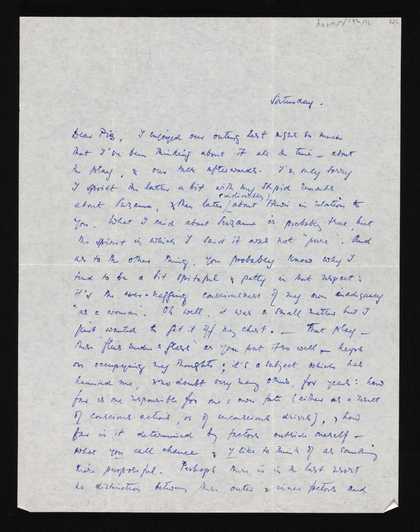 Saturday.
Dear Fitz, I enjoyed our outing last night so much
that I've been thinking about it all the time – about
the play, & our talk afterwards. I'm only sorry
I spoilt the latter a bit with my stupid remarks
about Suzanne, & then later about in relation to
you. What I said about Suzanne is probably true but
the spirit in which I said it was not "pure". And
as to the other thing, you probably know why I
tend to be a bit spiteful & petty in that respect:
it's the ever-nagging consciousness of my own inadequacy
"as a woman". Oh well, it was a small matter but I
just wanted to get it off my chest. – That play –
as you put too well – keeps
on occupying my thoughts; it's a subject which has
haunted me, & no doubt very many others, for years: how
far is one responsible for one's own fate (either as a result
of conscious actions, or of unconscious drives), & how
far is it determined by factors outside oneself –
what you call chance & I like to think of as something
more purposeful. Perhaps there is in the last resort
no distinction between these outer & inner factors and